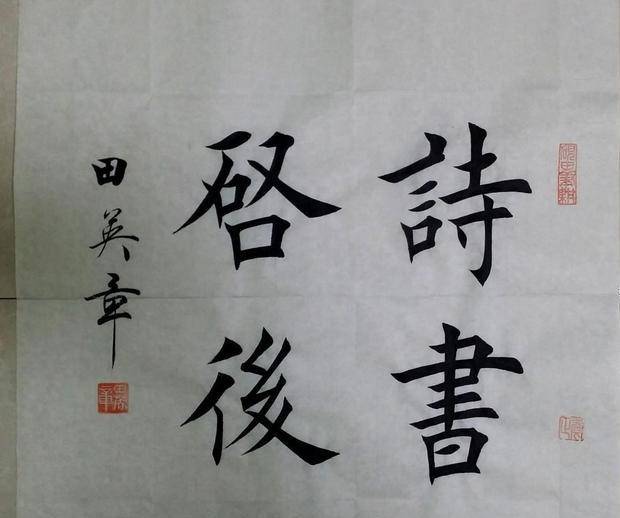 詩書
啓後
田英章